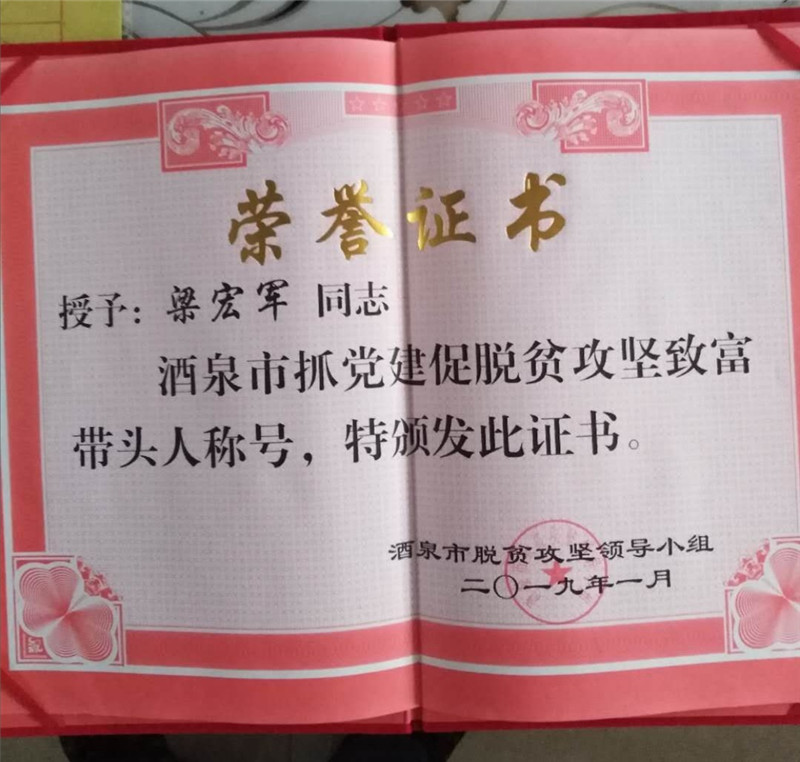 荣誉证书
授予：梁宏军 同志
酒泉市抓党建促脱贫攻坚致富
带头人称号，特颁发此证书。
酒泉市脱贫攻坚领导小组
二〇一九年一月